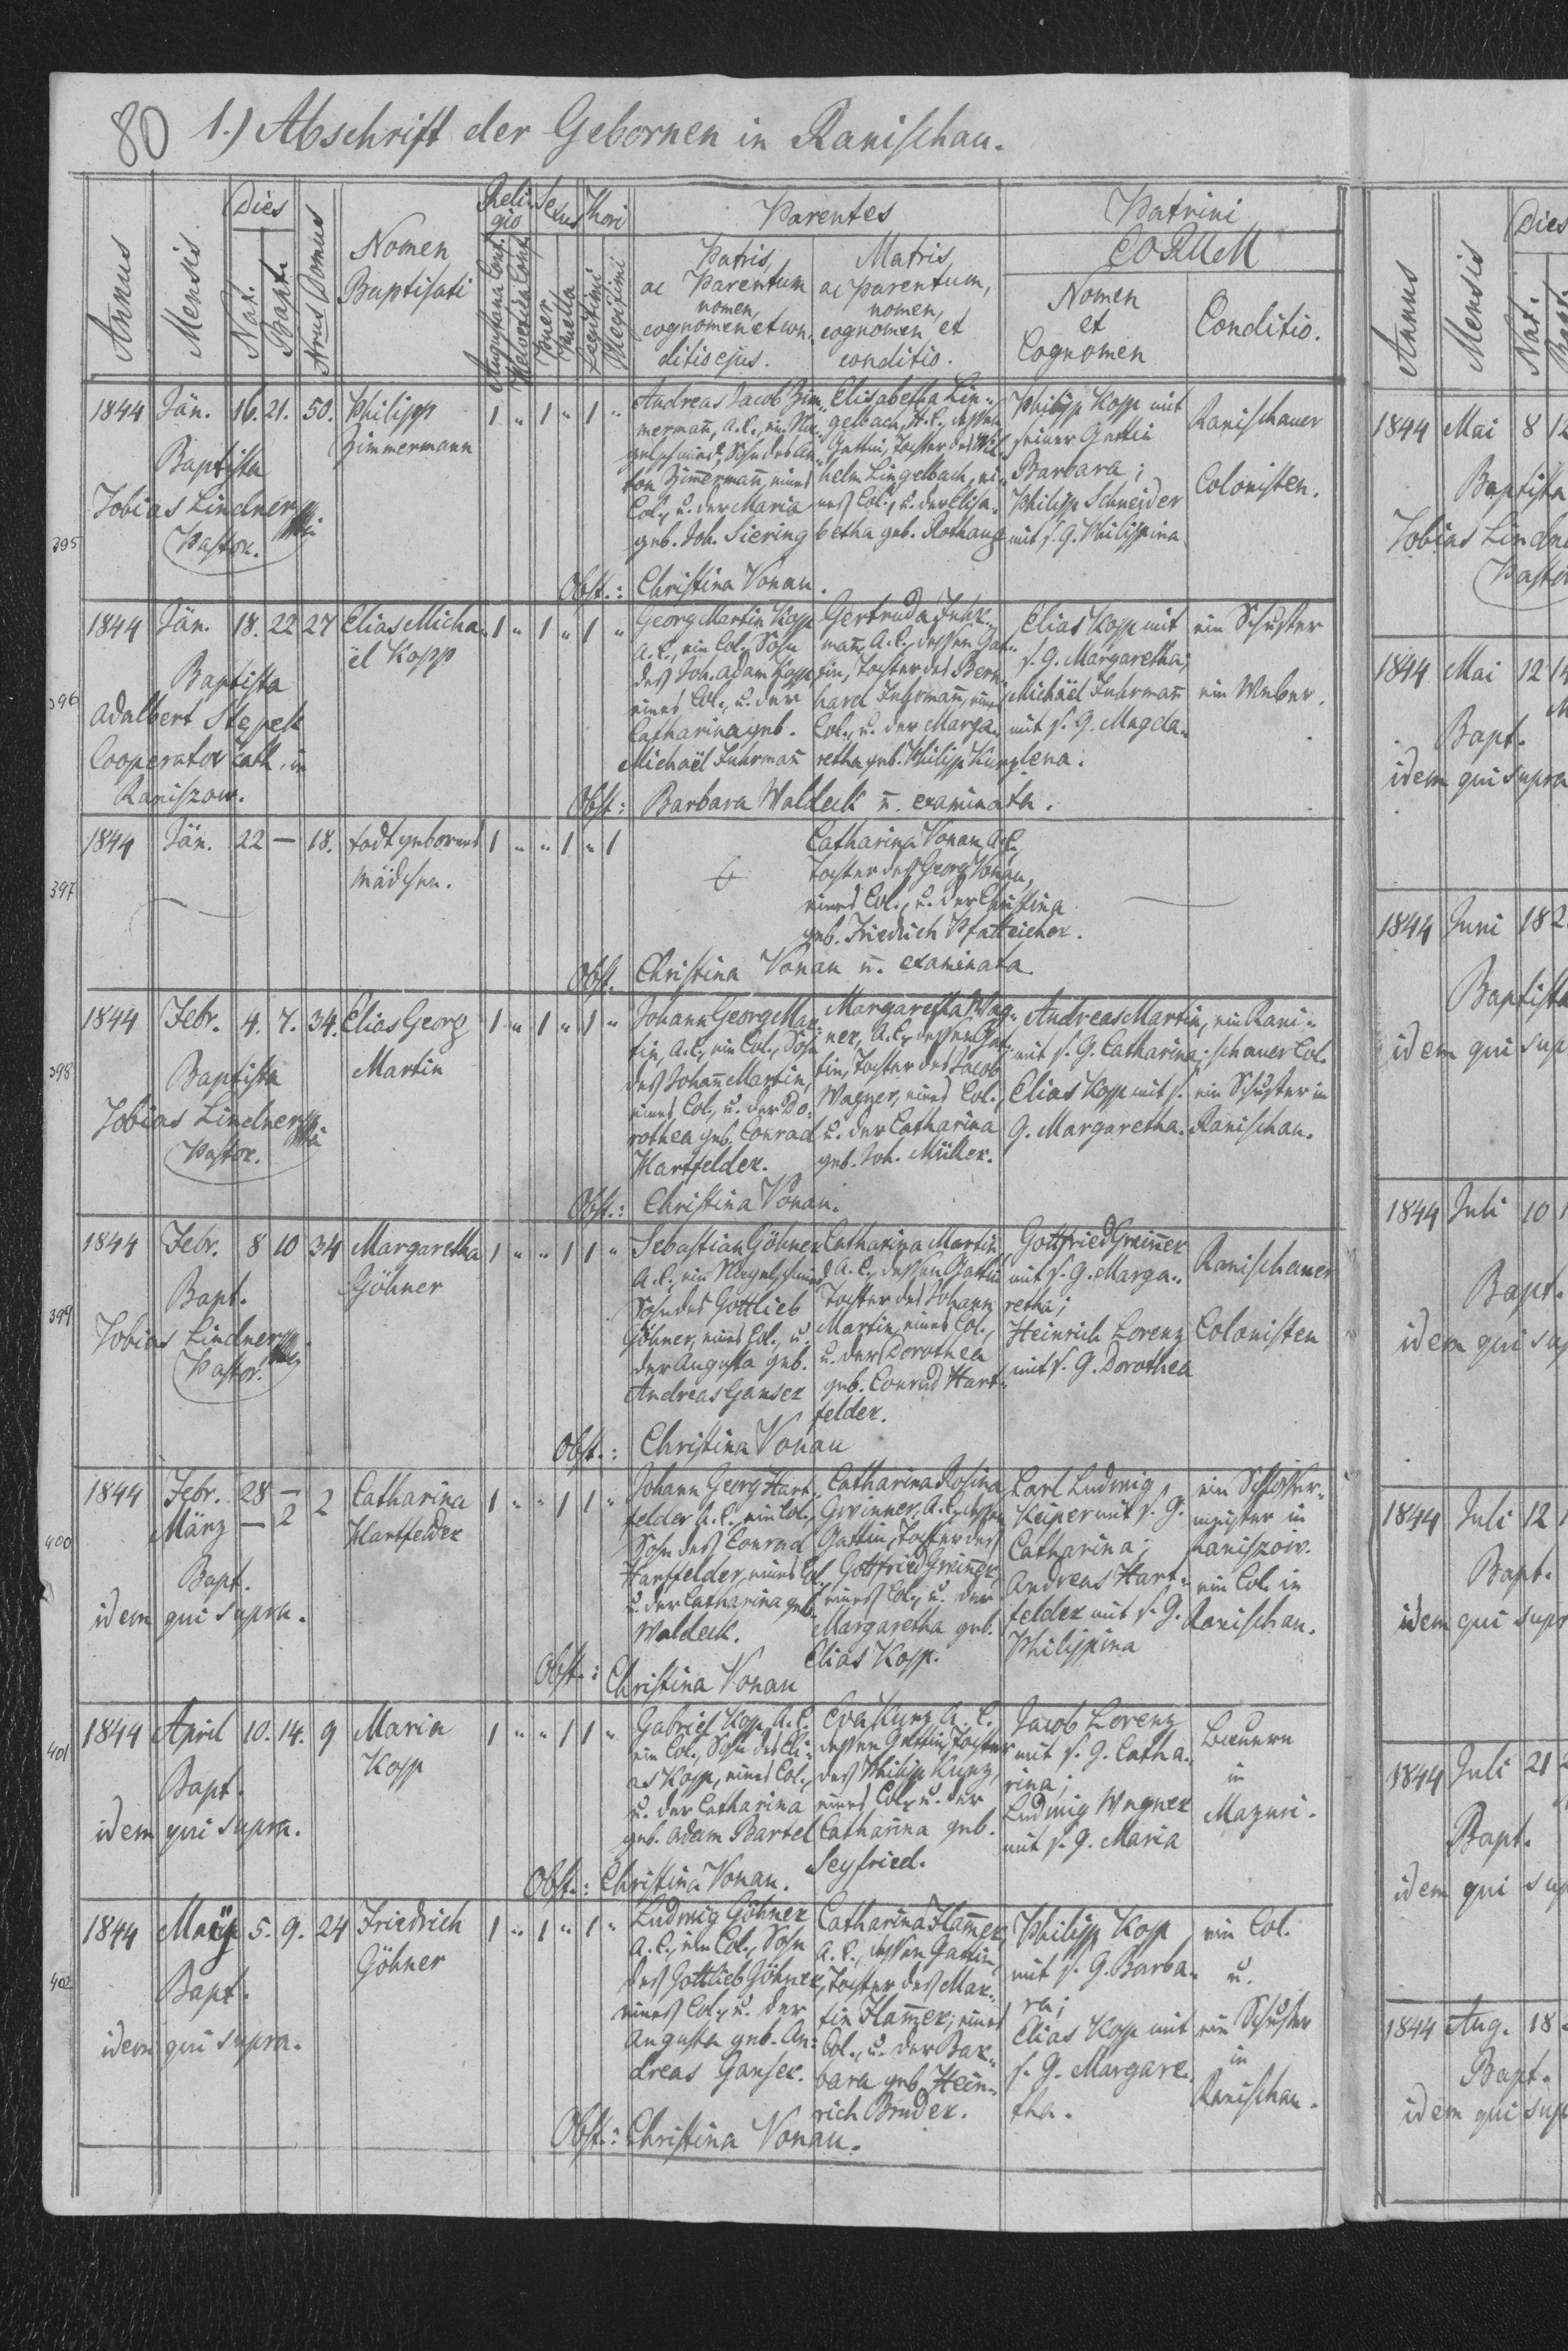 80 1.) Abschrift der Gebornen in Ranischau.
Annus
Mensis
Dies
Nat.
Bapt.
Nrus Domus
Nomen
Baptisati
Religio
Augustana Conf.
Helvetica Conf.
Sexus
Puer
Puella
Thori
Legitimi
Illegitimi
Parentes
Patris,
ac Parentum
nomen,
cognomen et con-
ditio ejus.
Matris,
ac parentum,
nomen,
cognomen et
conditio.
Patrini
EORUM
Nomen
et
Cognomen
Conditio.
395
1844 Jän. 16. 21. 50. Philipp
Zimmermann
1 " 1 " 1 "
Baptista
Tobias Lindner
Pastor.
Andreas Jacob Zim-
mermañ, A.C., ein Na-
gelschmied, Sohn des An-
ton Zimmermañ, eines
Col., u. der Maria
geb. Joh. Siering
Elisabetha Lin-
gelbach, H.C., dessen
Gattin, Tochter des Wil-
helm Lingelbach, ei-
nes Col., u. der Elisa-
betha geb. Rothaug
Philipp Kopp mit
seiner Gattin
Barbara;
Philipp Schneider
mit s. G. Philippina
Ranischauer
Colonisten.
Obst.: Christina Vonau.
396
1844 Jän. 18. 22 27 Elias Micha-
ël Kopp
1 " 1 " 1 "
Baptista
Adalbert Stepek
Cooperator Cath. in
Raniszow.
Georg Martin Kopp
A.C., ein Col., Sohn
des Joh. Adam Kopp
eines Col., u. der
Catharina geb.
Michaël Fuhrmañ
Gertruda Fuhr-
mañ, A.C., dessen Gat-
tin, Tochter des Bern-
hard Fuhrmañ, eines
Col., u. der Marga-
retha geb. Philipp Kunz
Elias Kopp mit
s. G. Margaretha;
Michaël Fuhrmañ
mit s. G. Magda-
lena.
ein Schuster
ein Weber.
Obst: Barbara Waldeck n. examinata.
397
1844 Jän. 22 — 18. todtgebornes
Mädchen.
1 " " 1 " 1
Catharina Vonau, A.C.
Tochter des Georg Vonau,
eines Col., u. der Christina
geb. Friedrich Pfatteicher.
Obst. Christina Vonau n. examinata.
398
1844 Febr. 4. 7. 34. Elias Georg
Martin
1 " 1 " 1 "
Baptista
Tobias Lindner
Pastor.
Johann Georg Mar-
tin, A.C., ein Col., Sohn
des Johañ Martin,
eines Col., u. der Do-
rothea geb. Conrad
Hartfelder.
Margaretha Wag-
ner, A.C., dessen Gat-
tin, Tochter des Jacob
Wagner, eines Col.,
u. der Catharina
geb. Joh. Müller.
Andreas Martin,
mit s. G. Catharina;
Elias Kopp mit s.
G. Margaretha.
ein Rani-
schauer Col.
ein Schuster in
Ranischau.
Obst.: Christina Vonau.
399
1844 Febr. 8 10 34 Margaretha
Göhner
1 " " 1 1 "
Bapt.
Tobias Lindner
Pastor.
Sebastian Göhner
A.C., ein Nagelschmied
Sohn des Gottlieb
Göhner, eines Col., u.
der Augusta geb.
Andreas Ganser
Catharina Martin
A.C., dessen Gattin
Tochter des Johann
Martin, eines Col.,
u. der Dorothea
geb. Conrad Hart-
felder.
Gottfried Greiñer
mit s. G. Marga-
retha;
Heinrich Lorenz
mit s. G. Dorothea
Ranischauer
Colonisten
Obst.: Christina Vonau
400
1844 Febr. 28 —
März — 2 2 Catharina
Hartfelder
1 " " 1 1 "
Bapt.
idem qui supra.
Johann Georg Hart-
felder A.C., ein Col.,
Sohn des Conrad
Hartfelder, eines Col.
u. der Catharina geb.
Waldeck.
Catharina Rosina
Greinner, A.C., dessen
Gattin, Tochter des
Gottfried Greiñer,
eines Col., u. der
Margaretha geb.
Elias Kopp.
Carl Ludwig
Keiper mit s. G.
Catharina;
Andreas Hart-
felder mit s. G.
Philippina
ein Schlosser-
meister in
Raniszow.
ein Col. in
Ranischau.
Obst.: Christina Vonau
401
1844 April 10. 14. 9 Maria
Kopp
1 " " 1 1 "
Bapt.
idem qui supra.
Gabriel Kopp A.C.
ein Col., Sohn des Eli-
as Kopp, eines Col.,
u. der Catharina
geb. Adam Bartel
Eva Kunz A.C.
dessen Gattin, Tochter
des Philipp Kunz,
eines Col., u. der
Catharina geb.
Seyfried.
Jacob Lorenz
mit s. G. Catha-
rina;
Ludwig Wagner
mit s. G. Maria
Bauern
in
Mazuri.
Obst.: Christina Vonau.
402
1844 5. 9. 24 Friedrich
Göhner
1 " 1 " 1 "
Bapt.
idem qui supra.
Ludwig Göhner
A.C., ein Col., Sohn
des Gottlieb Göhner,
eines Col., u. der
Augusta geb. An-
dreas Ganser.
Catharina Hamer,
A.C., dessen Gattin,
Tochter des Mar-
tin Hamer, eines
Col., u. der Bar-
bara geb. Hein-
rich Bruder.
Philipp Kopp
mit s. G. Barba-
ra;
Elias Kopp mit
s. G. Margare-
tha.
ein Col.
u.
ein Schuster
in
Ranischau.
Obst.: Christina Vonau.
Annus
Mensis
Dies
Nat.
1844 Mai 8
Baptista
Tobias
1844 Mai 12
Bapt.
idem qui supra
1844 Juni 18
Baptista
idem qui
1844 Juli 10
Bapt.
idem qui
1844 Juli 12
Bapt.
idem qui
1844 Juli 21
Bapt.
idem qui
1844 Aug. 18
Bapt.
idem qui